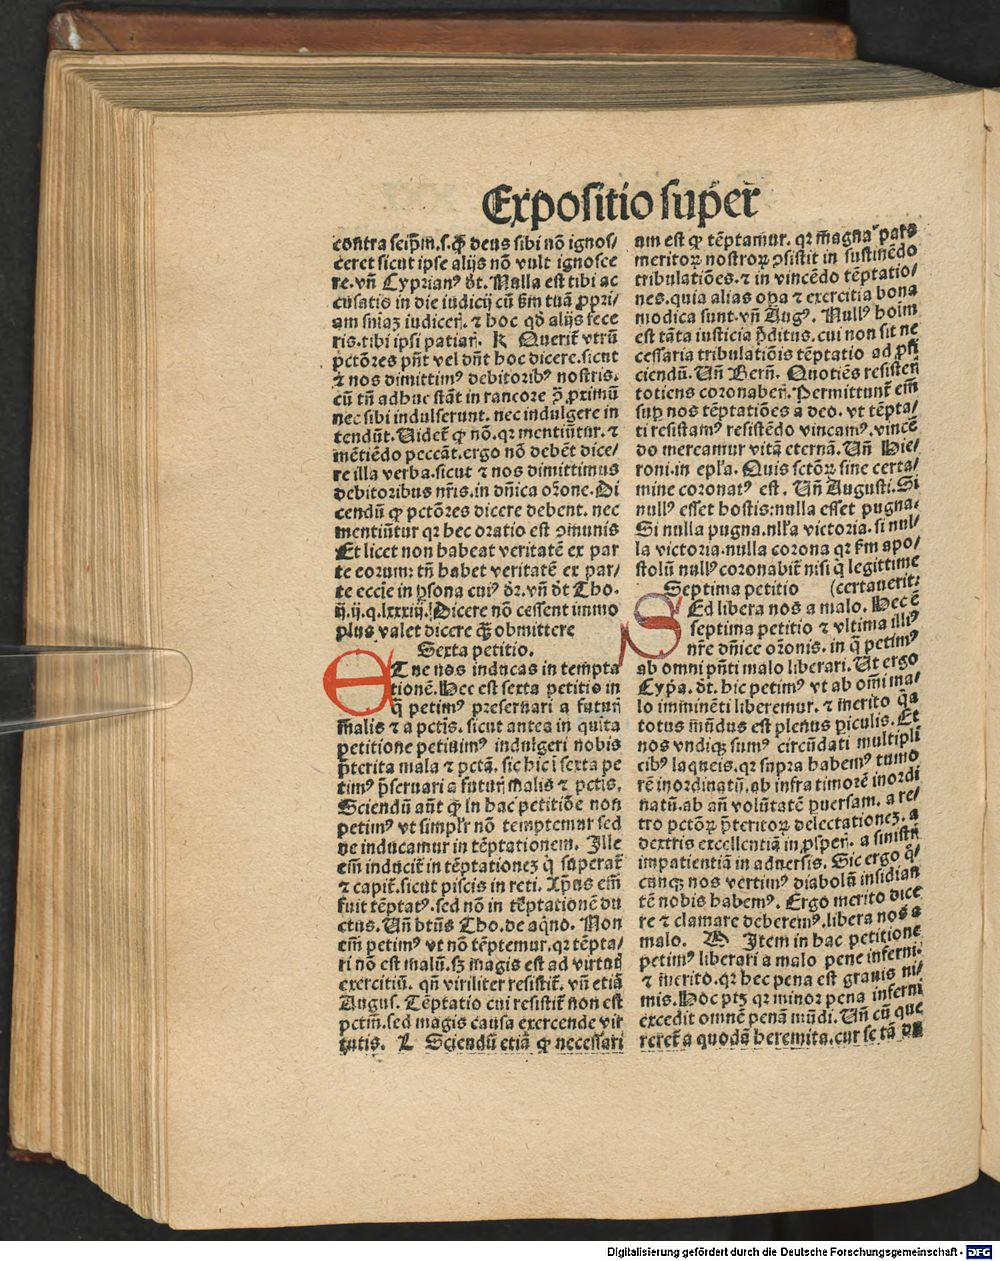 Expositio suꝑ
contra seip̄m.s.ꝙ deus sibi nō ignos/
ceret sicut ipse alijs nō vult ignosce
re.vn̄ Cyprianꝰ d̄t. Nulla est tibi ac
cusatis in die iudicij cū ẜm tuā ꝓpri/
am sn̄iaꝫ iudicer̄. ⁊ hoc qd̄ alijs fece
ris.tibi ipsi patiar̄. K Querit̄ vtrū
pctōres pn̄t vel dn̄t hoc dicere.sicut
⁊ nos dimittimꝰ debitoribꝰ nostris.
cū tn̄ adhuc stāt in rancore ꝯ̄ ꝓximū
nec sibi indulserunt. nec indulgere in
tendūt. Videt̄ ꝙ nō.qꝛ mentiūtur. ⁊
mētiēdo peccāt.ergo nō debēt dice/
re illa verba.sicut ⁊ nos dimittimus
debitoribus nr̄is.in dn̄ica or̄one. Di
cendū ꝙ pctōres dicere debent. nec
mentiūtur qꝛ hec oratio est ꝯmunis
Et licet non habeat veritatē ex par
te eorum: tn̄ habet veritatē ex par/
te eccl̄ie in ꝑsona cuiꝰ dr̄. vn̄ d̄t Tho.
ij.ij.q.lxxxiij. Dicere nō cessent immo
plus valet dicere q̄ꝫ obmittere
Sexta petitio.
ET ne nos inducas in tempta
tionē. Hec est sexta petitio in
q̄ petimꝰ preseruari a futur̄
malis ⁊ a pctīs. sicut antea in quīta
petitione petiuimꝰ indulgeri nobis
p̄terita mala ⁊ pctā. sic hic ī sexta pe
timꝰ p̄seruari a futur̄ malis ⁊ pctīs.
Sciendū aūt ꝙ in hac petitiōe non
petimꝰ vt simpl̄r nō temptemur sed
ne inducamur in tēptationem. Ille
em̄ inducit̄ in tēptationeꝫ q̄ superat̄
⁊ capit̄.sicut piscis in reti. Xp̄us em̄
fuit tēptatꝰ.sed nō in tēptationē du
ctus. Vn̄ btūs Tho.de aq̄no. Non
em̄ petimꝰ vt nō tēptemur.qꝛ tēpta/
ri nō est malū.sꝫ magis est ad virtuꝭ
exercitiū. qn̄ viriliter resistit̄. vn̄ etiā
Augus. Tēptatio cui resistit̄ non est
pctm̄.sed magis causa exercende vir
tutis. L Sciendū etiā ꝙ necessari
um est ꝙ tēptamur. qꝛ magna pars
meritoꝝ nostroꝝ ꝯsistit in sustinēdo
tribulatiōes.⁊ in vincēdo tēptatio/
nes.quia alias oꝑa ⁊ exercitia bona
modica sunt.vn̄ Augꝰ. Nullꝰ hoīm
est tāta iusticia p̄ditus. cui non sit ne
cessaria tribulatiōis tēptatio ad ꝓfi
ciendū. Vn̄ Bern̄. Quotiēs resisteꝭ
totiens coronaber̄. Permittunt̄ em̄
suꝑ nos tēptatiōes a deo. vt tēpta/
ti resistamꝰ resistēdo vincamꝰ. vincē
do mereamur vitā eternā. Vn̄ Hie/
roni. in epl̄a. Quis sctōꝝ sine certa/
mine coronatꝰ est. Vn̄ Augusti. Si
nullꝰ esset hostis:nulla esset pugna.
Si nulla pugna. nl̄la victoria. si nul/
la victoria.nulla corona qꝛ ẜm apo/
stolū nullꝰ coronabit̄ nisi q̄ legittime
Septima petitio (certauerit:
SEd libera nos a malo. Hec ē
septima petitio ⁊ vltima illiꝰ
nr̄e dn̄ice or̄onis. in q̄ petimꝰ
ab omni pn̄ti malo liberari. Vt ergo
Cypa. d̄t. hic petimꝰ vt ab om̄i ma/
lo imminēti liberemur. ⁊ merito q̄a
totus mūdus est plenus ꝑiculis. Et
nos vndiqꝫ sumꝰ circūdati multipli
cibꝰ laqueis.qꝛ supra habemꝰ timo
rē inordinatū.ab infra timorē inordi
natū.ab an̄ volūtatē ꝑuersam. a re/
tro pctōꝝ p̄teritoꝝ delectationeꝫ. a
dextris excellentiā in ꝓsper̄. a sinistris
impatientiā in aduersis. Sic ergo q̄/
cunqꝫ nos vertimꝰ diabolū insidian
tē nobis habemꝰ. Ergo merito dice
re ⁊ clamare deberemꝰ.libera nos a
malo. M Item in hac petitione
petimꝰ liberari a malo pene inferni.
⁊ merito.qꝛ hec pena est grauis ni/
mis. Hoc ptꝫ qꝛ minor pena inferni
excedit omnē penā mūdi. Vn̄ cū que
reret̄ a quodā heremita.cur se tā
Digitalisierung gefördert durch die Deutsche Forschungsgemeinschaft - DFG